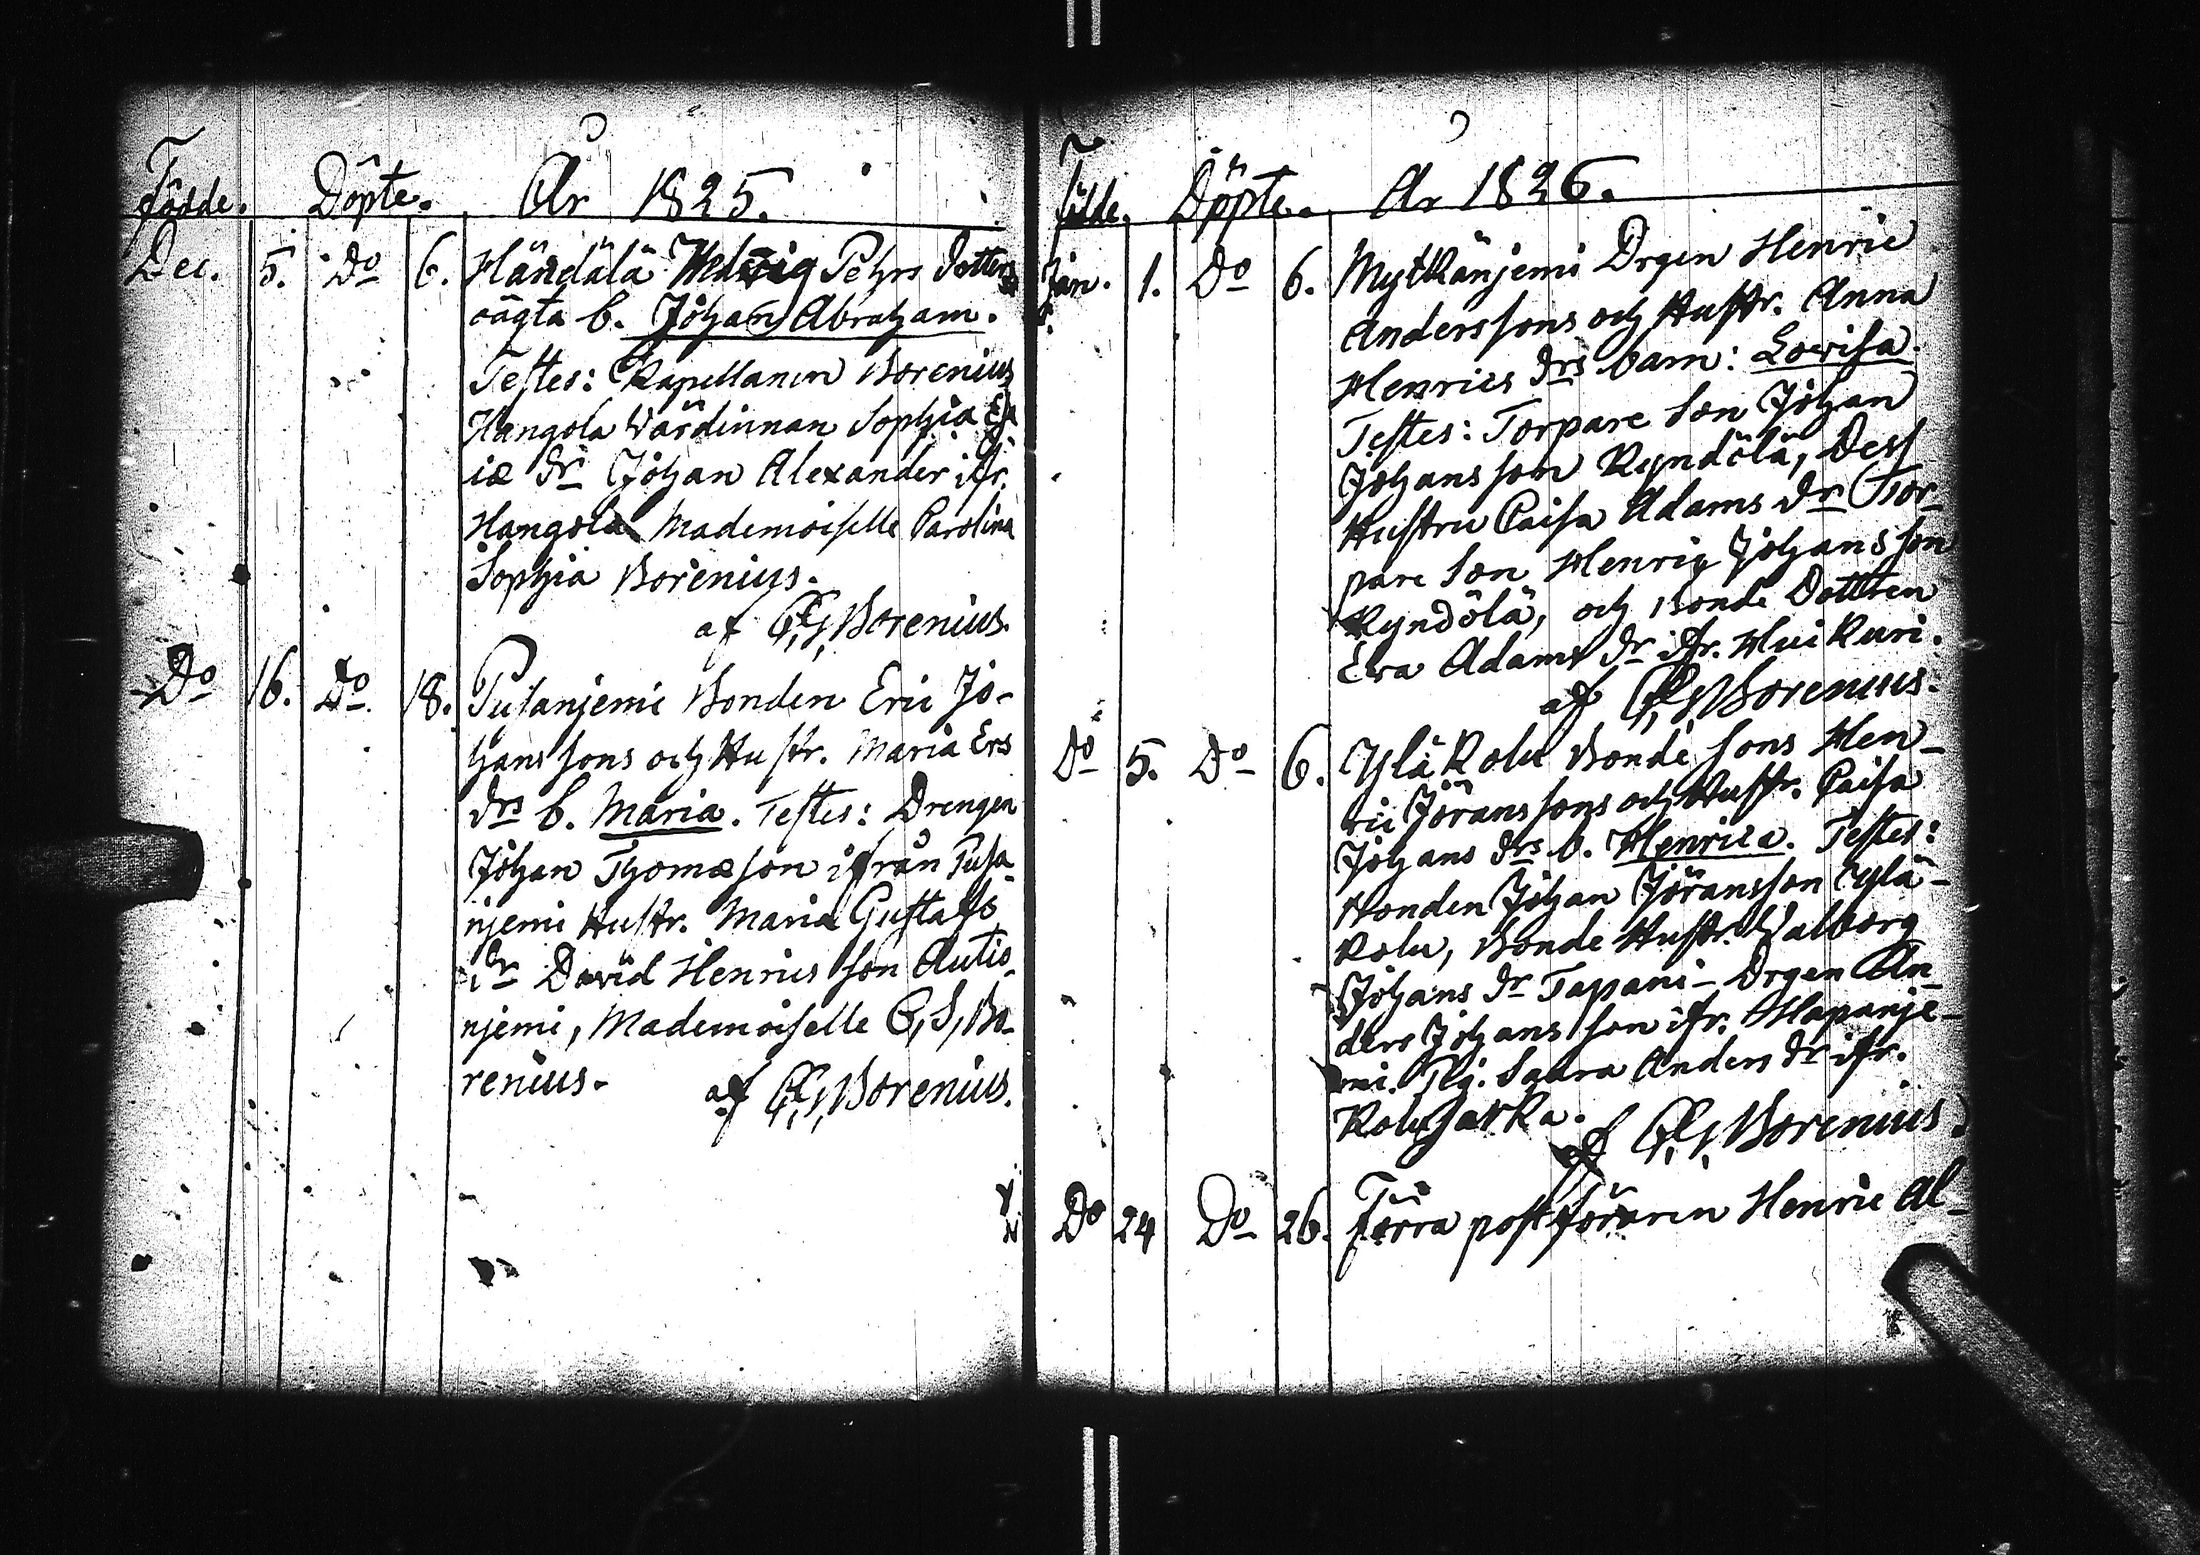 Födde. Döpte. År 1825.
Dec. 5. Do 6. Händälä Hedvig Pehrs Dotters
oägta b. Johan Abraham.
Testes: Kapellanen Borenius
Hangola Värdinnan Sophia
iæ dr Johan Alexander ifr.
Hangola Mademoiselle Carolina
Sophia Borenius.
af C. G. Borenius.
Do 16. Do 18. Pusanjemi Bonden Eric Jo-
hanssons och Hustr. Maria Ers
drs b. Maria. Testes: Drengen
Johan Thomæson ifrån Pusa-
njemi Hustr. Maria Gustafs
dr David Henricsson Autio-
njemi, Mademoiselle C, S, Bo-
renius.
af C. G. Borenius.
Födde. Döpte. År 1826.
Jan. 1. Do 6. Mytkänjemi Drgen Henric
Anderssons och Hustr. Anna
Henrics drs barn: Lovisa.
Testes: Torpare Son Johan
Johansson Kyndölä, Dess
Hustru Caisa Adams dr Tor-
pare Son Henric Johansson
Kyndölä, och Bonde Dottren
Eva Adams dr ifr. Huikuri.
af C. G. Borenius.
Do 5. Do 6. Yläkolu Bonde Sons Hen-
ric Joranssons och Hustr. Caisa
Johans drs b. Henrica. Testes:
Bonden Johan Joransson Ylä-
kolu, Bonde Hustr. Valborg
Johans dr Tapani- Drgen An-
ders Johansson ifr. Hapanje-
mi. Pig. Saara Anders dr ifr.
Kolusarka.
af C. G. Borenius.
Do 24 Do 26. Förra postföraren Henric Al-